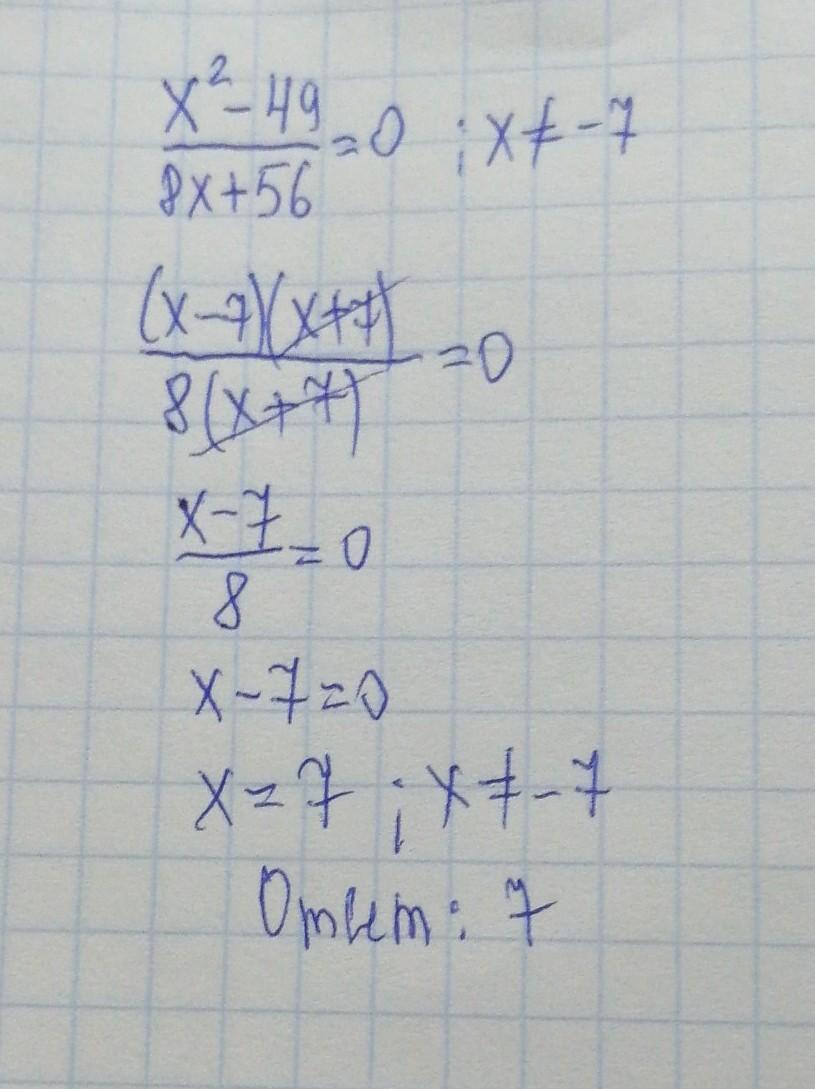 x² - 49 / 8x + 56 = 0 ; x ≠ -7
(x - 7)(x + 7) / 8(x + 7) = 0
x - 7 / 8 = 0
x - 7 = 0
x = 7 ; x ≠ -7
Ответ: 7